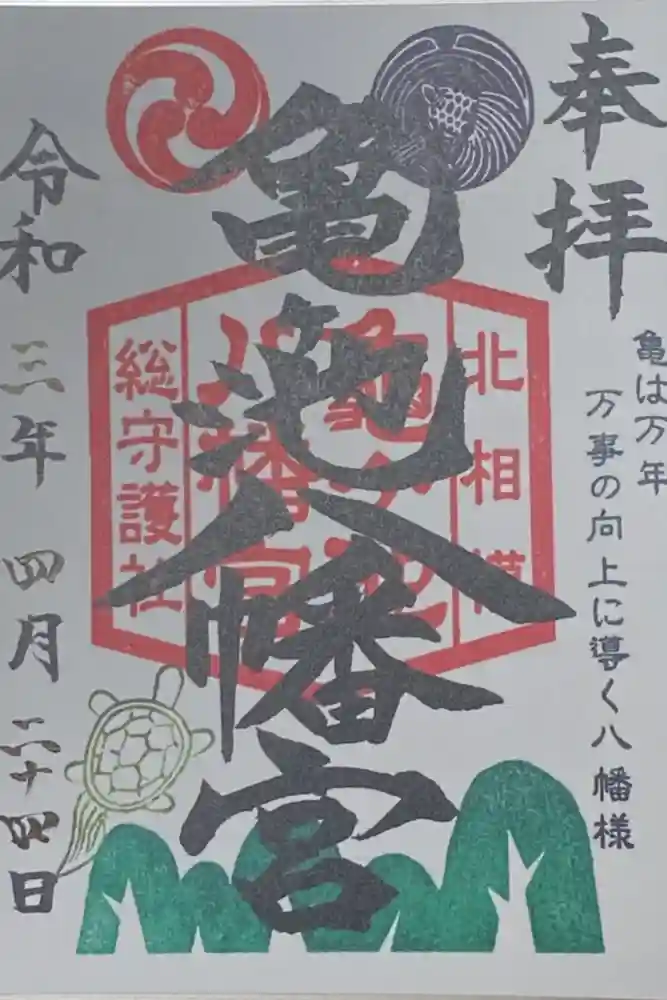 奉拝
亀は万年
万事の向上に導く八幡様
亀池八幡宮
北相模
亀ヶ池
八幡宮
総守護社
令和三年四月二十四日